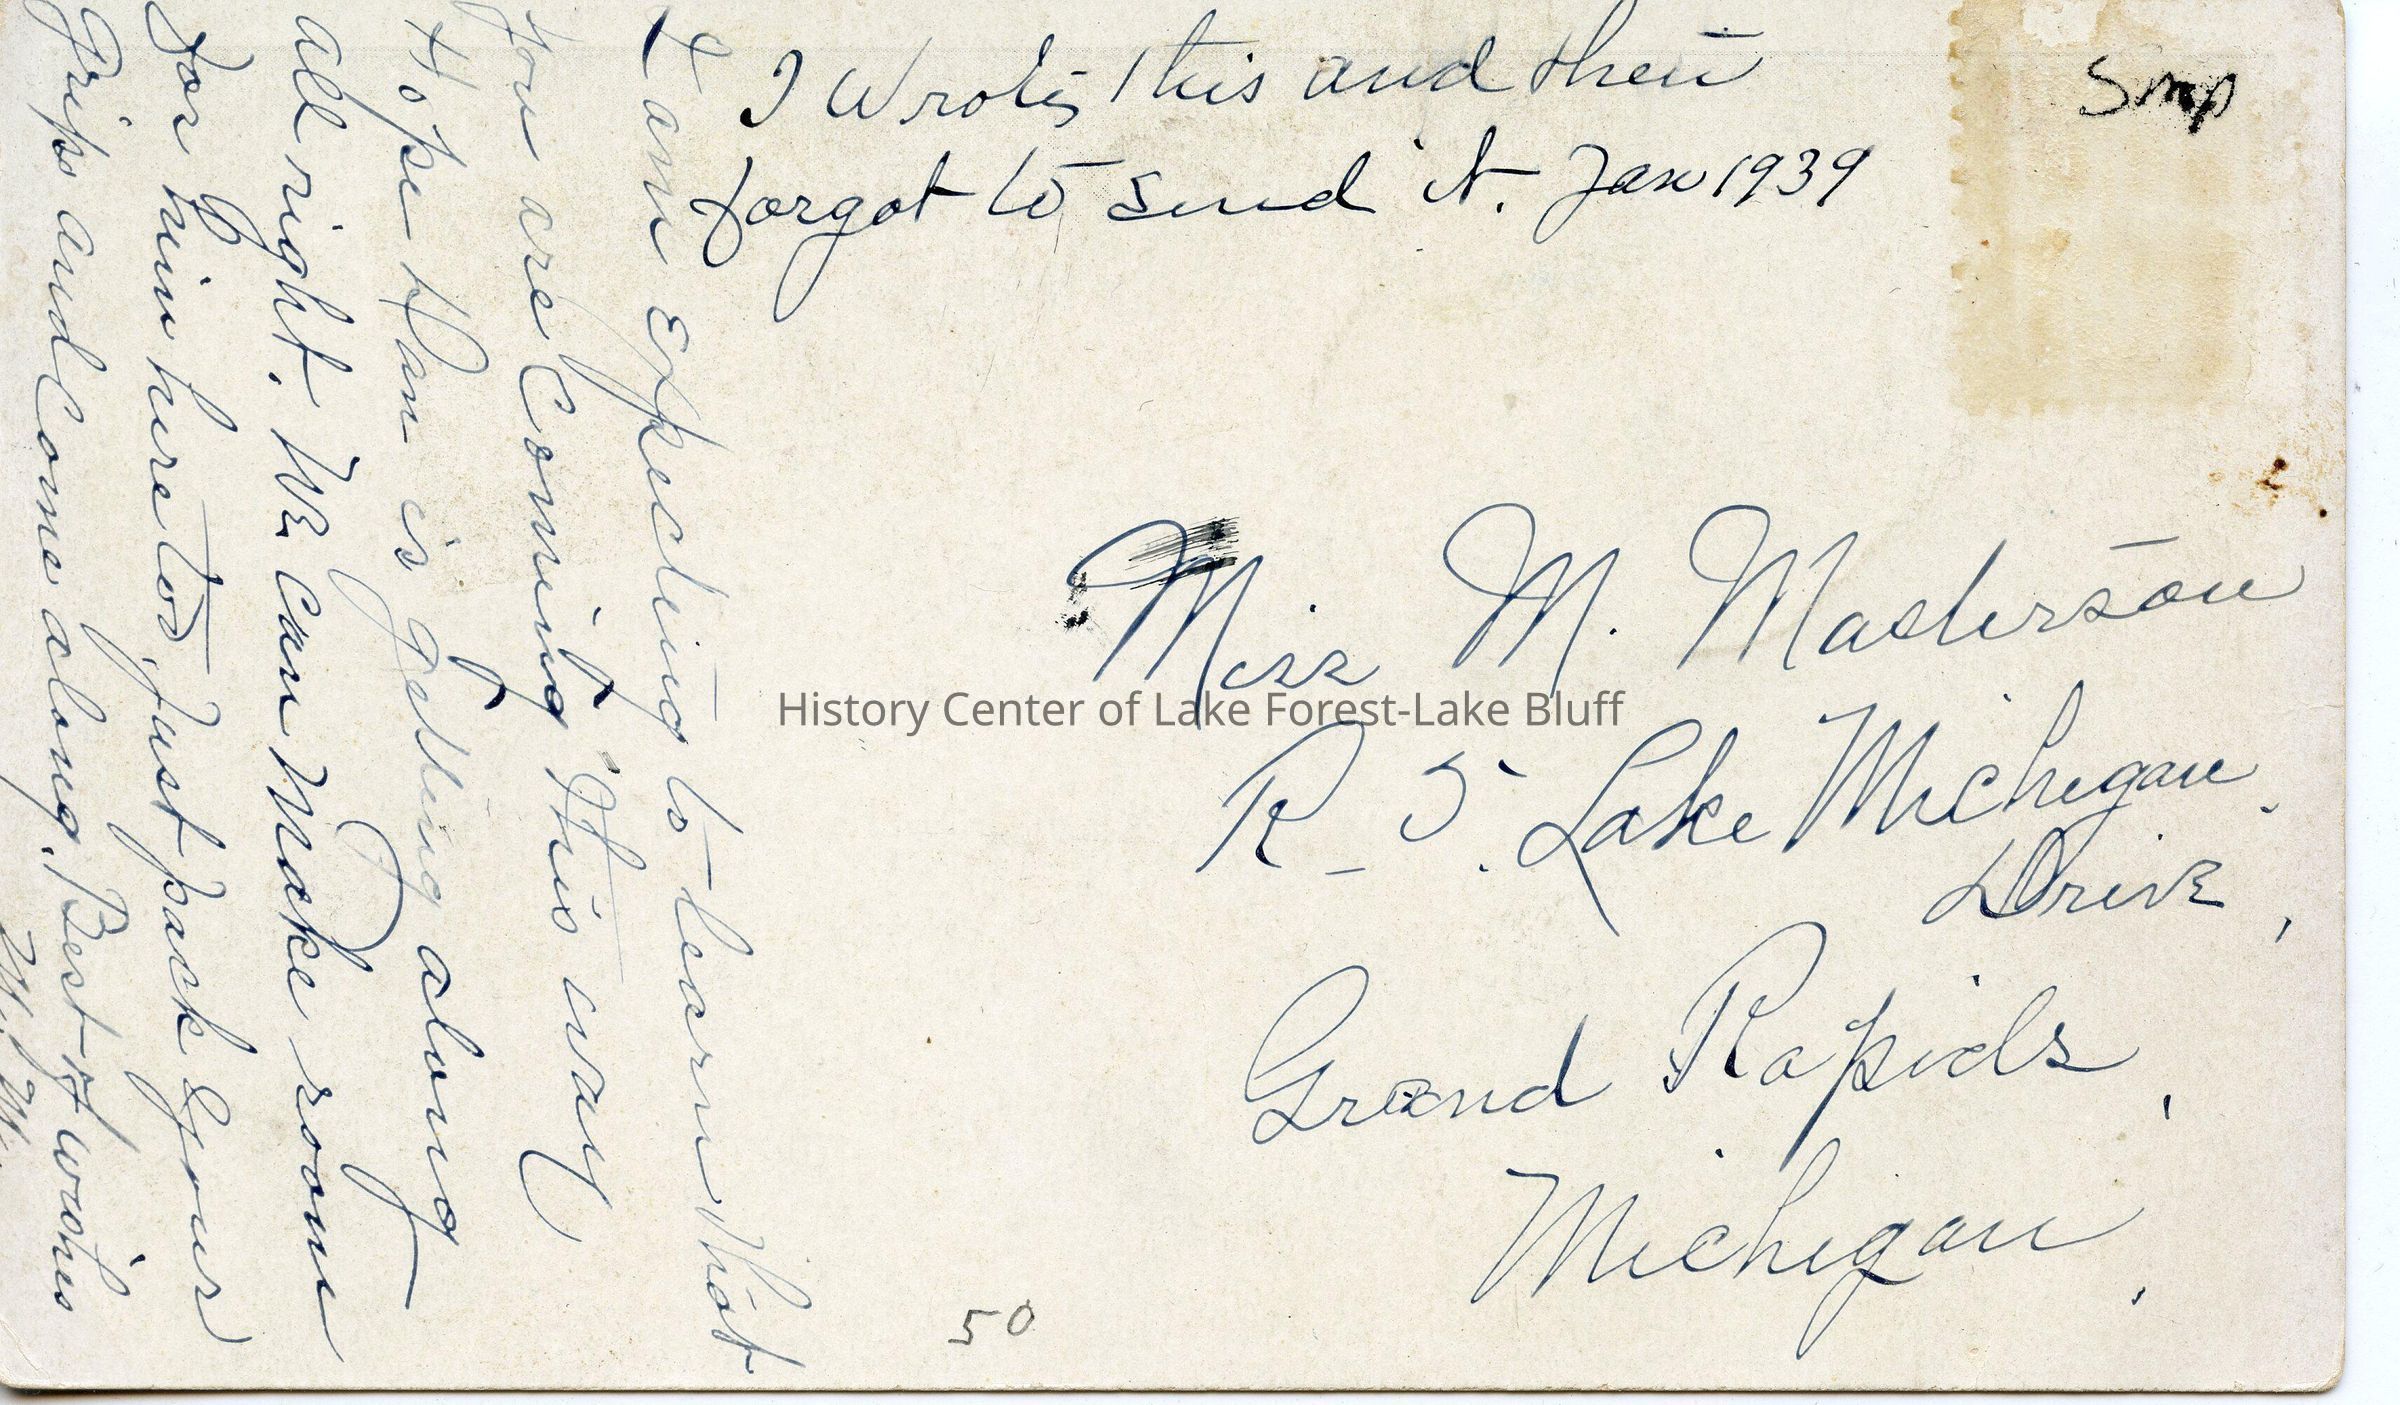 I wrote this and then
forgot to send it. Jan 1939
I am expecting to learn that
you are coming this way
Hope Han is getting along
all right. We can make room
for him here too, just pack your
grips and come along. Best wishes
M. M.
Miss M. Masterson
R - 5. Lake Michigan
Drive,
Grand Rapids,
Michigan.
50
History Center of Lake Forest-Lake Bluff